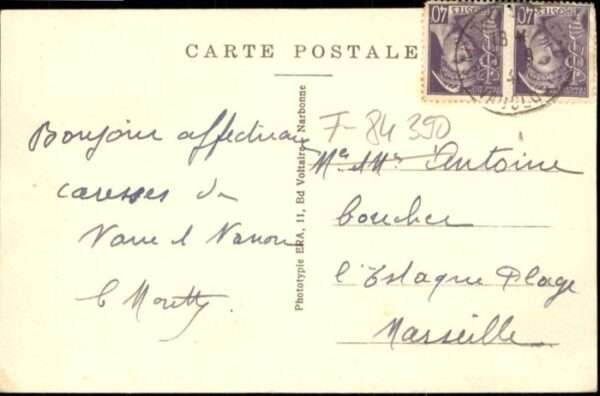 CARTE POSTALE
40 POSTES
40 POSTES
Bonjour affectueux
caresses de
et Nanou
F-84 390
Mr & Me Antoine
boucher
l'Estaque Plage
Marseille
Phototypie ERA, 11, Bd Voltaire, Narbonne